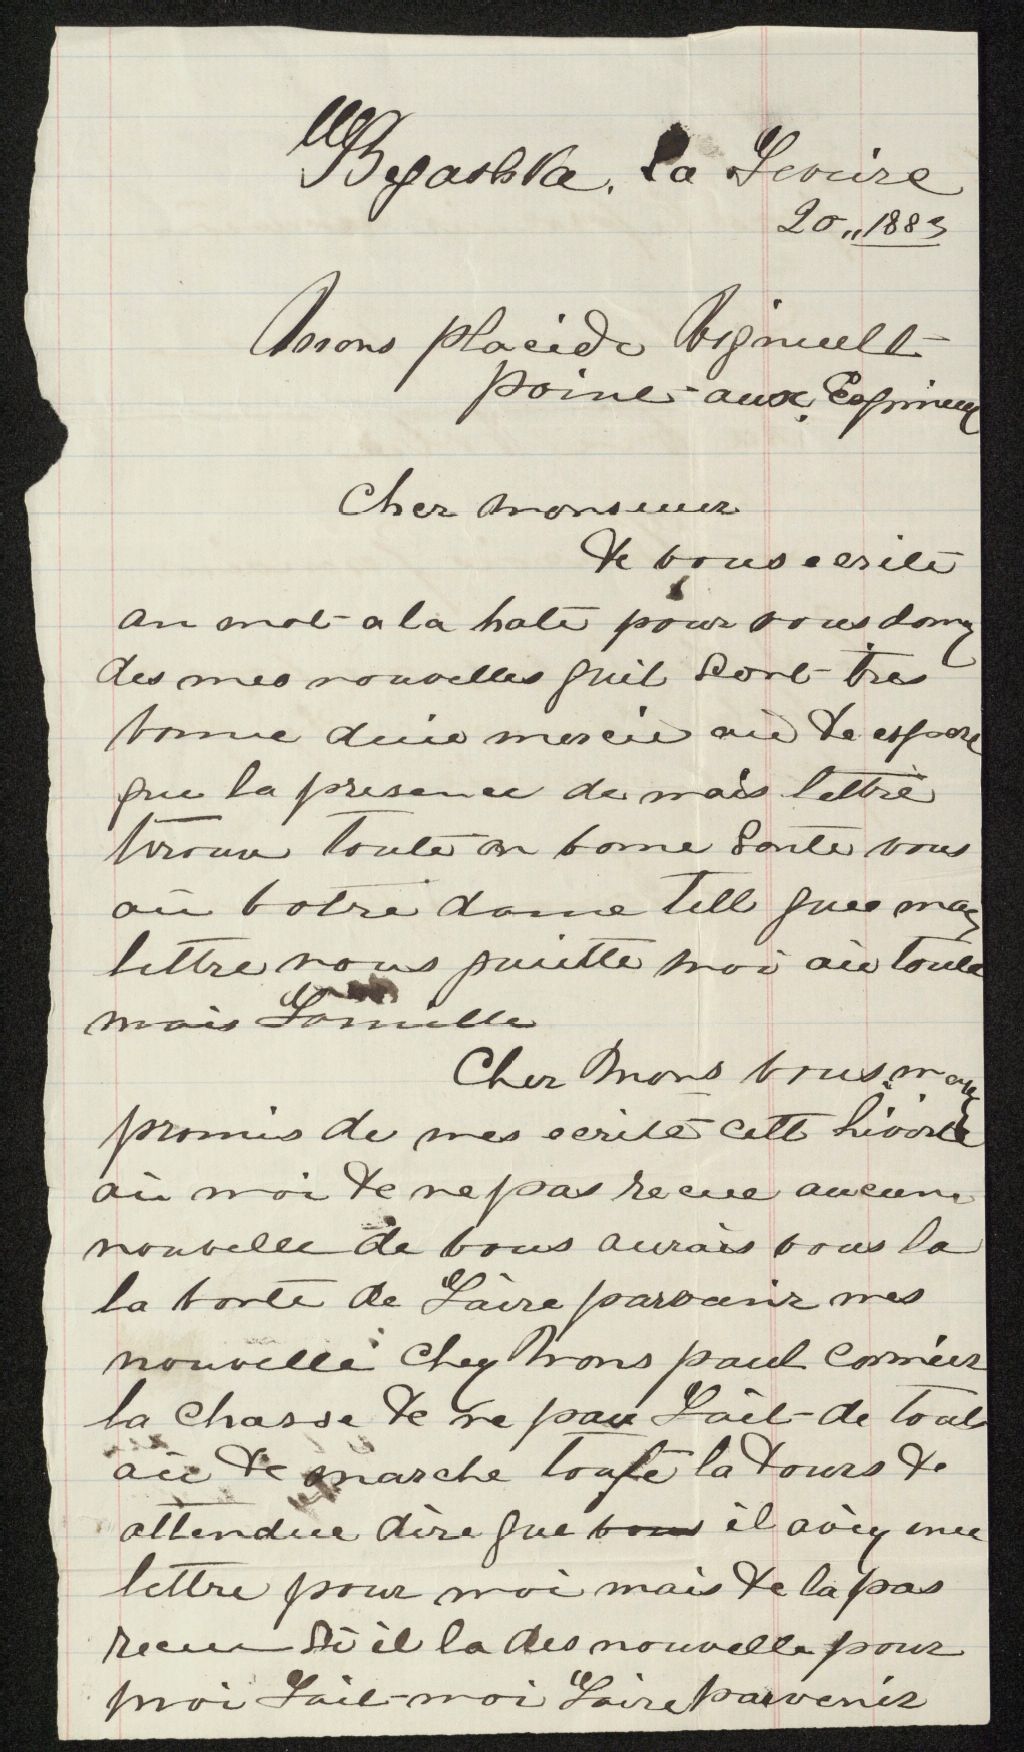 Begashka. La Fevrire
20 ,, 1883
Mons placide Vigneult
poine - aux. Esqimeux
Cher monsieur
Je vous ecrite
an mot a la hate pour vous donez
des mes nouvelles quil sont tres
bonne dieu mercie aie Je espere
que la presence de mais lettre
trouve toute en bonne Sante vous
aie votre dame tell que maz
lettre nous quiitte moi aie toute
mais Famille
Cher Mons vous maz
promis de mes ecrite cett hivorte
aie moi Je ne pas recue aucune
nouvelle de vous aurais vous la
la bonte de Faire parvenir mes
nouvelle chez Mons paul Cormier
la Chasse Je ne pau Fait de tout
aie Je marche toute la Jours Je
attendue dire que vous il avez une
lettre pour moi mais Je la pas
recue Si il la des nouvelle pour
moi Fait moi Faire parvenir